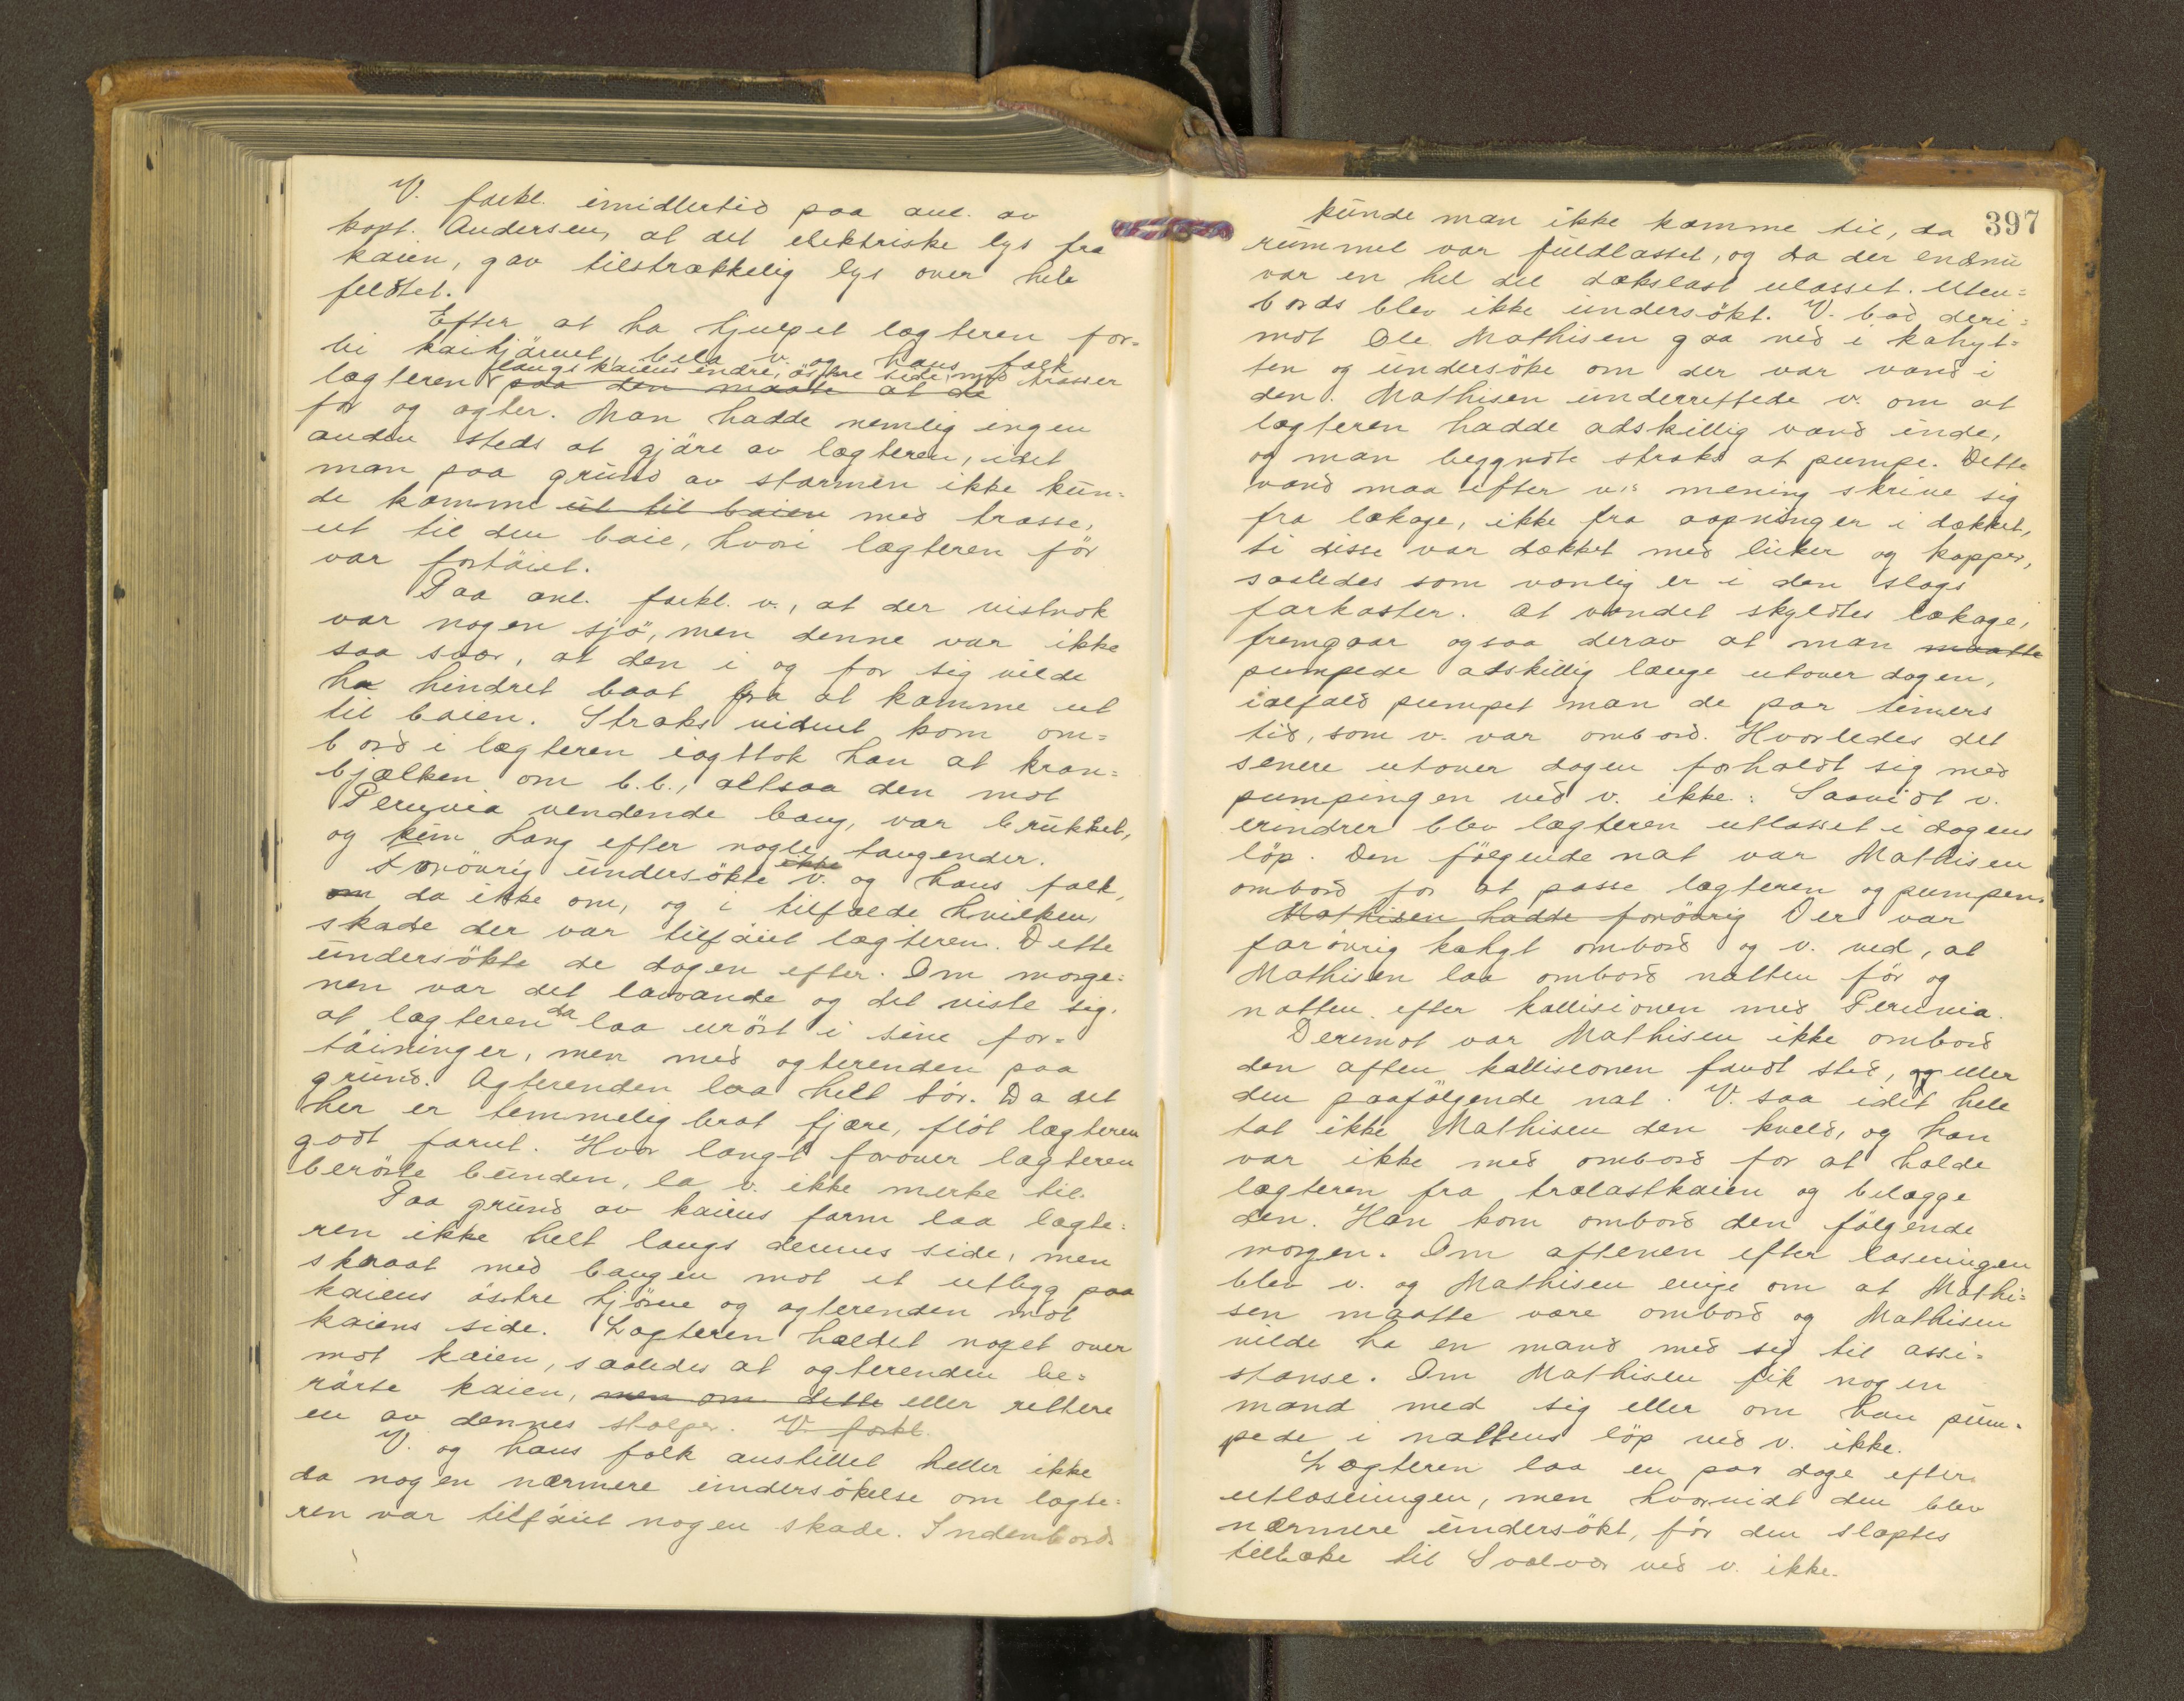 V. forkl. imidlertid paa anl. av
kapt. Andersen, at det elektriske lys fra
kaien, gav tilstrækkelig lys over hele
feldtet.
Efter at ha hjulpet lægteren for-
bi kaihjörnet, bela v. og hans folk
langs kaiens indre, östre side, med trosser
lægteren paa den maate at de
for og agter. Man hadde nemlig ingen
anden steds at gjöre av lægteren, idet
man paa grund av stormen ikke kun-
de komme ut til baien med trosse,
ut til den baie, hvori lægteren för
var fortöiet.
Paa anl. forkl. v., at der vistnok
var nogen sjö, men denne var ikke
saa svær, at den i og for sig vilde
ha hindret baat fra at komme ut
til baien. Straks vidnet kom om-
bord i lægteren iagttok han at kran-
bjælken om b.b., altsaa den mot
Peruvia vendende baug, var brukket,
og kun hang efter nogle taugender.
Forövrig undersökte ikke v. og hans folk,
om da ikke om, og i tilfælde hvilken,
skade der var tilföiet lægteren. Dette
undersökte de dagen efter. Om morge-
nen var det lavvande og det viste sig,
at lægteren da laa urört i sine for-
töininger, men med agterenden paa
grund. Agterenden laa helt tör. Da det
her er temmelig brat fjære, flöt lægteren
godt forut. Hvor langt forover lægteren
berörte bunden, la v. ikke merke til.
Paa grund av kaiens form laa lægte-
ren ikke helt langs dennes side, men
skraat med baugen mot et utlegg paa
kaiens östre hjörne og agterenden mot
kaiens side. Lægteren heldet noget over
mot kaien, saaledes at agterenden be-
rörte kaien, men om dette eller rettere
en av dennes stolper. V. forkl.
V. og hans folk anstillet heller ikke
da nogen nærmere undersökelse om lægte-
ren var tilföiet nogen skade. Indenbords
397
kunde man ikke komme til, da
rummet var fuldlasset, og da der endnu
var en hel del dækslast ulosset. Uten-
bords blev ikke undersökt. V. bad deri-
mot Ole Mathisen gaa ned i kahyt-
ten og undersöke om der var vand i
den. Mathisen underrettede v. om at
lægteren hadde adskillig vand inde,
og man begyndte straks at pumpe. Dette
vand maa efter v.s mening skrive sig
fra lækage, ikke fra aapninger i dækket,
ti disse var dækket med luker og kapper,
saaledes som vanlig er i den slags
farkoster. At vandet skyldtes lækage,
fremgaar ogsaa derav at man maatte
pumpede adskillig længe utover dagen,
ialfald pumpet man de par timers
tid, som v. var ombord. Hvorledes det
senere utover dagen forholdt sig med
pumpingen ved v. ikke. Saavidt v.
erindrer blev lægteren utlosset i dagens
löp. Den fölgende nat var Mathisen
ombord for at passe lægteren og pumpen.
Mathisen hadde forövrig Der var
forövrig kahyt ombord og v. ved, at
Mathisen laa ombord natten för og
natten efter kollisionen med Peruvia.
Derimot var Mathisen ikke ombord
den aften kollisionen fandt sted, og eller
den paafölgende nat. V. saa idet hele
tat ikke Mathisen den kveld, og han
var ikke med ombord for at holde
lægteren fra trælastkaien og belægge
den. Han kom ombord den fölgende
morgen. Om aftenen efter losningen
blev v. og Mathisen enige om at Mathi-
sen maatte være ombord og Mathisen
vilde ha en mand med sig til assi-
stanse. Om Mathisen fik nogen
mand med sig eller om han pum-
pede i nattens löp ved v. ikke.
Lægteren laa en par dage efter
utlosningen, men hvorvidt den blev
nærmere undersökt, för den slæptes
tilbake til Svolvær ved v. ikke.